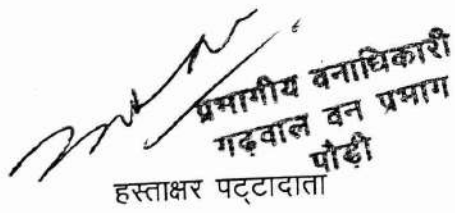 प्रभागीय वनाधिकारी
गढ़वाल वन प्रभाग
पौड़ी
हस्ताक्षर पट्टादाता